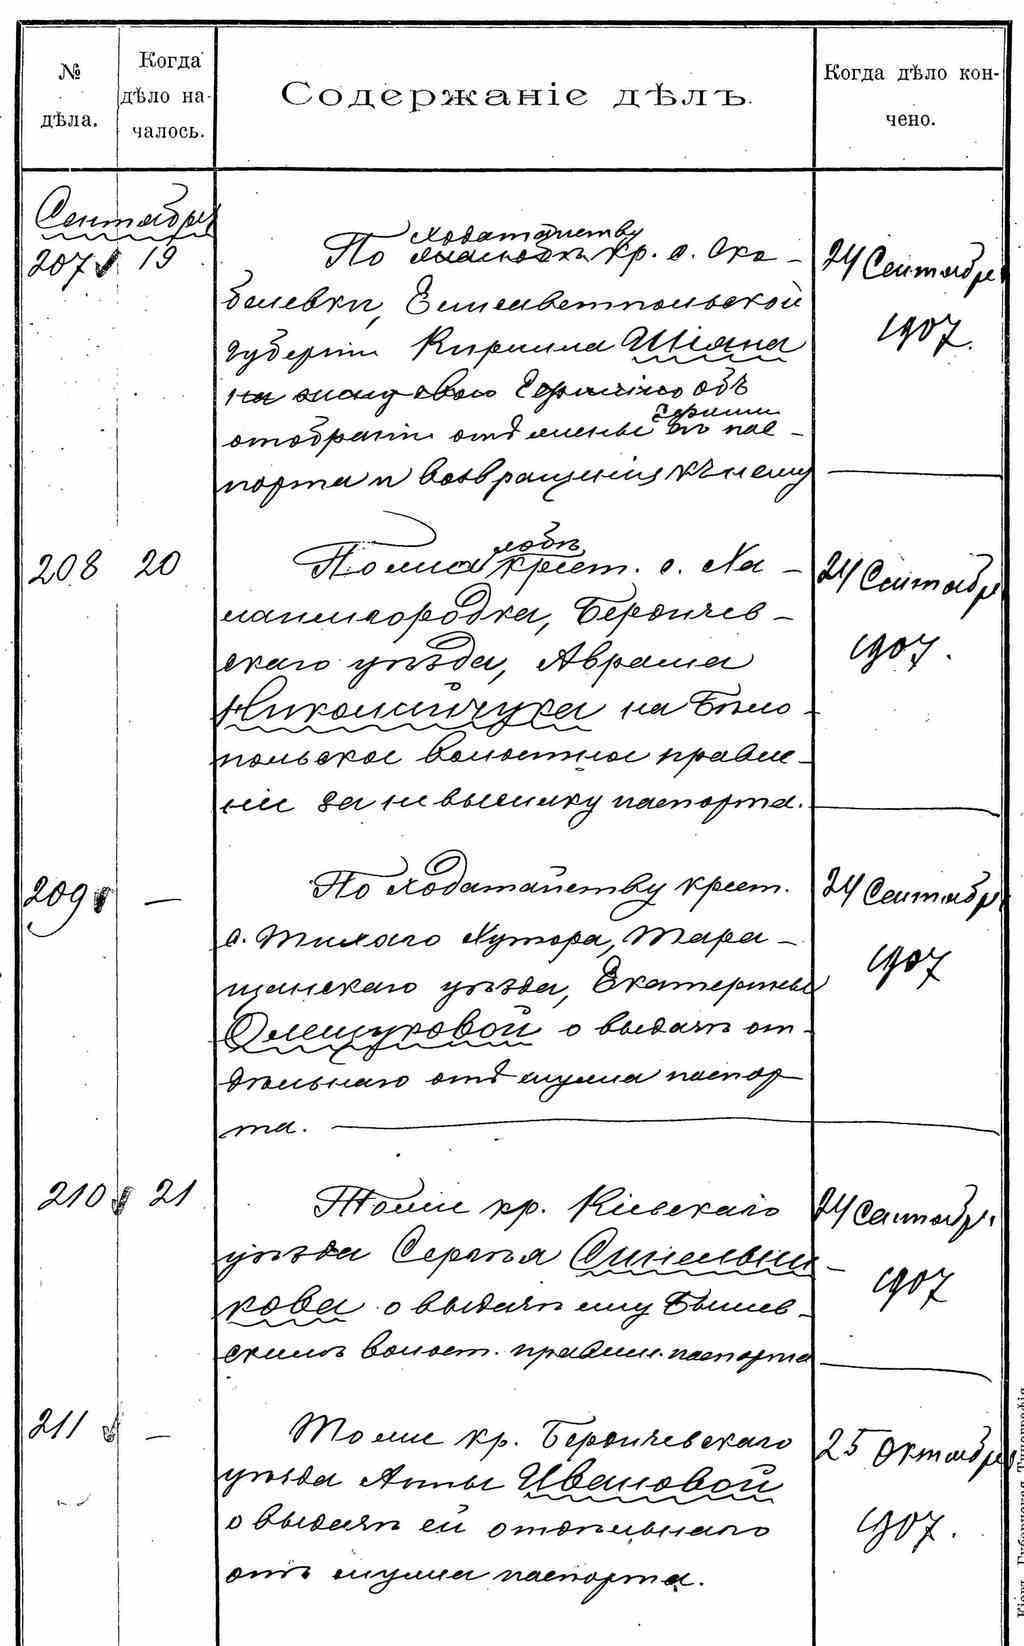 № дѣла.
Когда дѣло на-
чалось.
Содержаніе дѣлъ.
Когда дѣло кон-
чено.
Сентября
207 19
ходатайству
По жалобѣ кр. с. Ско-
белевки, Елисаветпольской
губерніи Кирилла Шіяна
на жену свою Ефимію объ
отобраніи отъ жены Ефиміи пас-
порта и возвращенія къ нему
24 Сентября
1907.
208 20
По жалобѣ крест. с. Ха-
жангородка, Бердичев-
скаго уѣзда, Аврама
Николайчука на Бѣло-
польское волостное правле-
ніе за невысылку паспорта.
24 Сентября
1907.
209 —
По ходатайству крест.
с. Тихаго Хутора, Тара-
щанскаго уѣзда, Екатерины
Олещуковой о выдачѣ от-
дѣльнаго отъ мужа паспор-
та.
24 Сентября
1907
210 21
Тоже кр. Кіевскаго
уѣзда Сергѣя Синельни-
кова о выдачѣ ему Бышев-
скимъ волост. правлен. паспорта
24 Сентябр.
1907
211 —
Тоже кр. Бердичевскаго
уѣзда Анны Ивановой
о выдачѣ ей отдѣльнаго
отъ мужа паспорта.
25 Октября
1907.
Кіев. Губернская Типографія